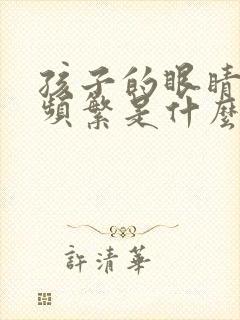 孩子的眼睛
頻繁是什麼
許清華